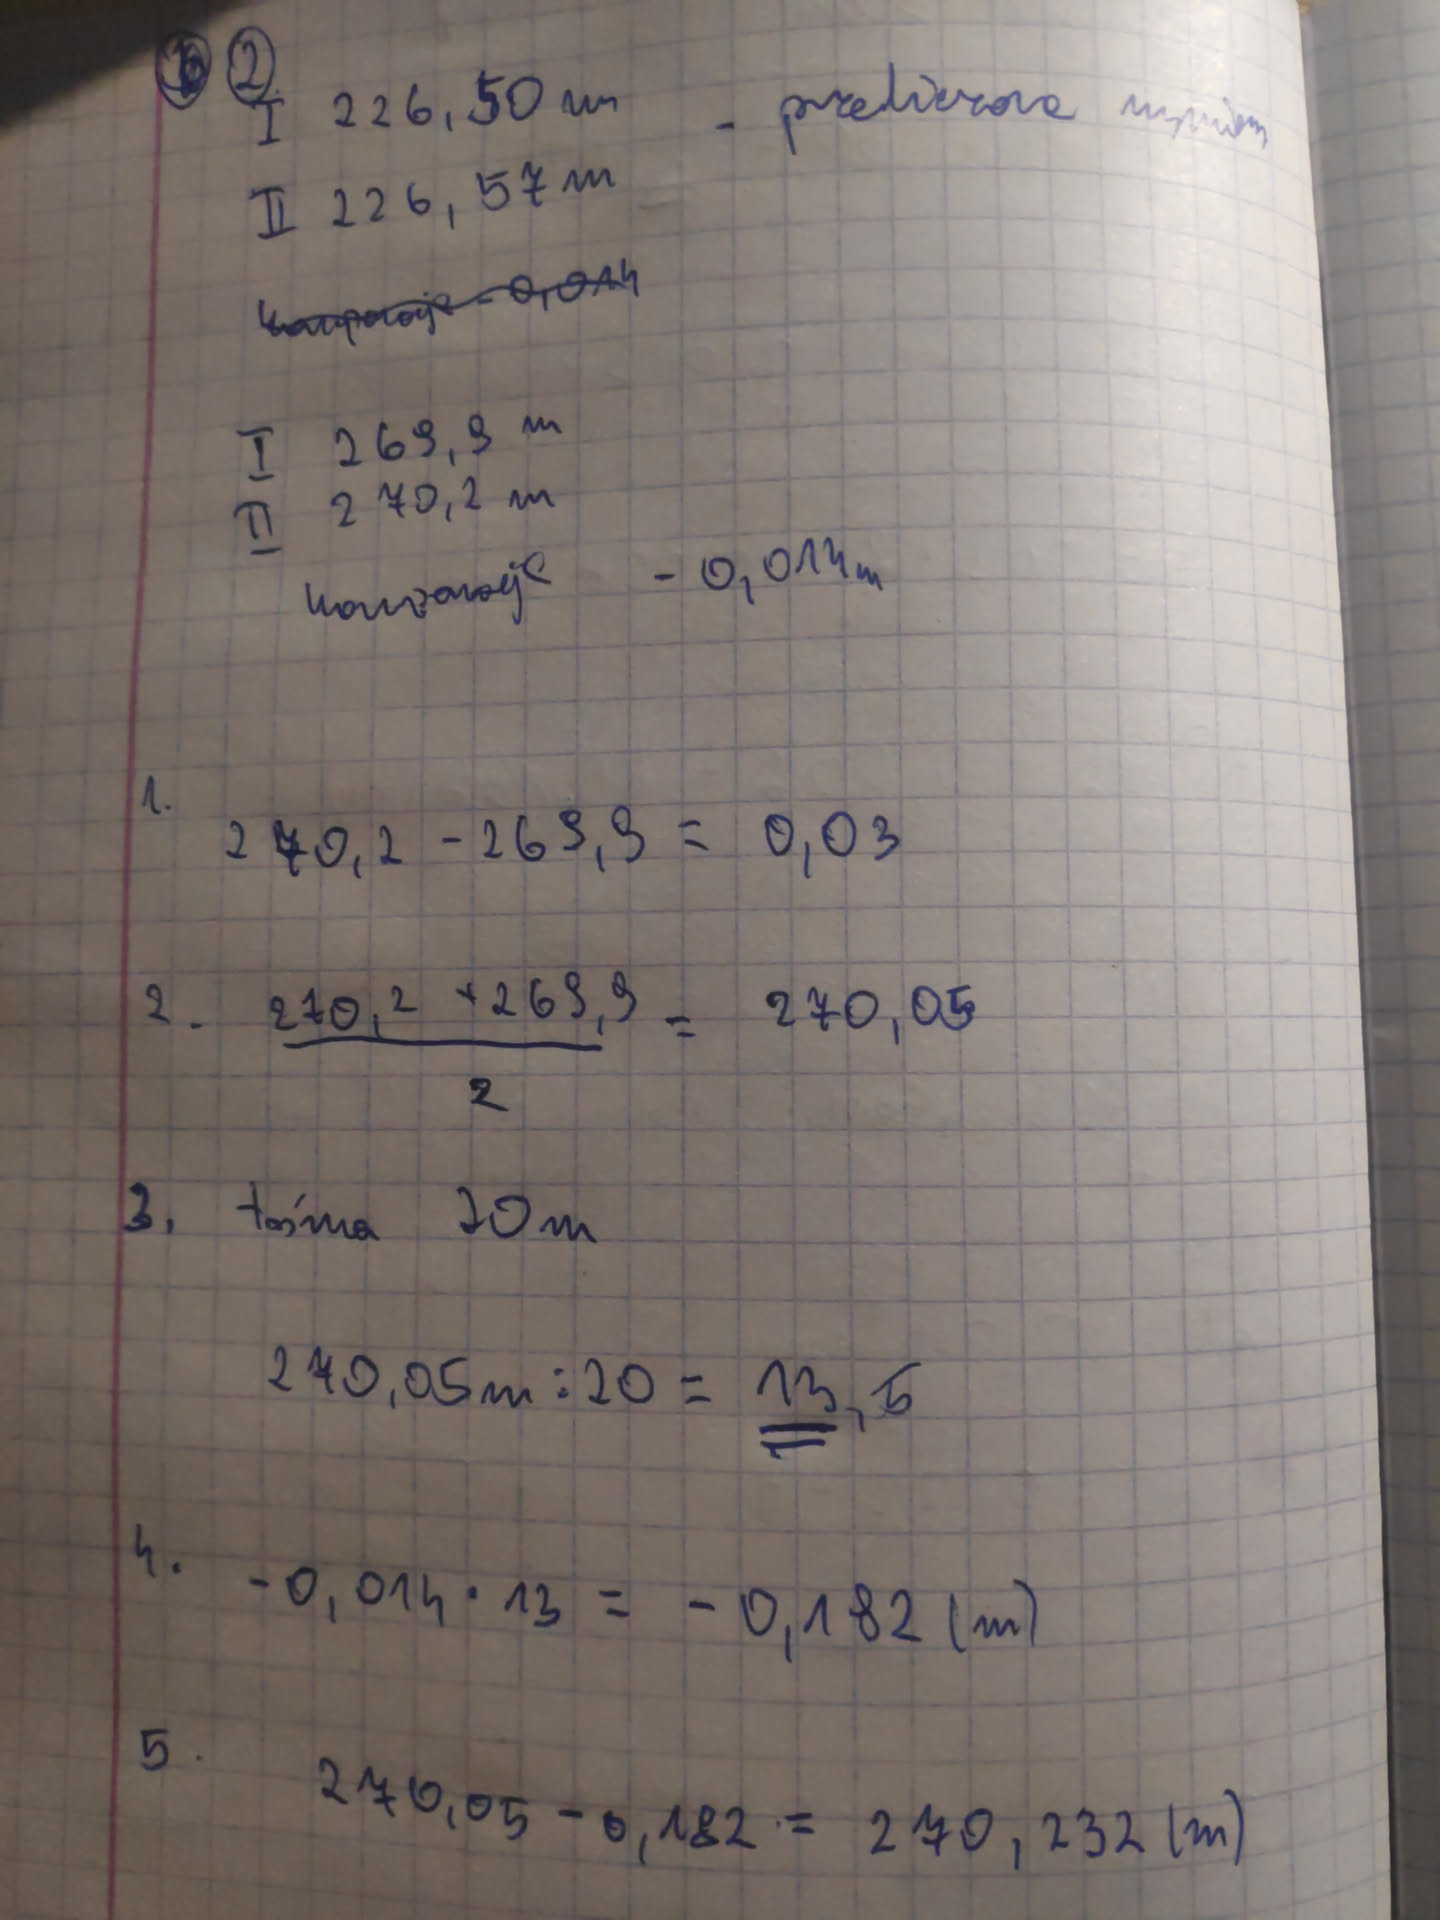 ②
I 226,50 m - przeliczone
II 226,57 m
I 269,9 m
II 270,2 m
- 0,014 m
1.
270,2 - 269,9 = 0,03
2. 270,2 + 269,9 = 270,05
2
3. taśma 20 m
270,05 m : 20 = 13,5
4. - 0,014 · 13 = - 0,182 (m)
5.
270,05 - 0,182 = 270,232 (m)